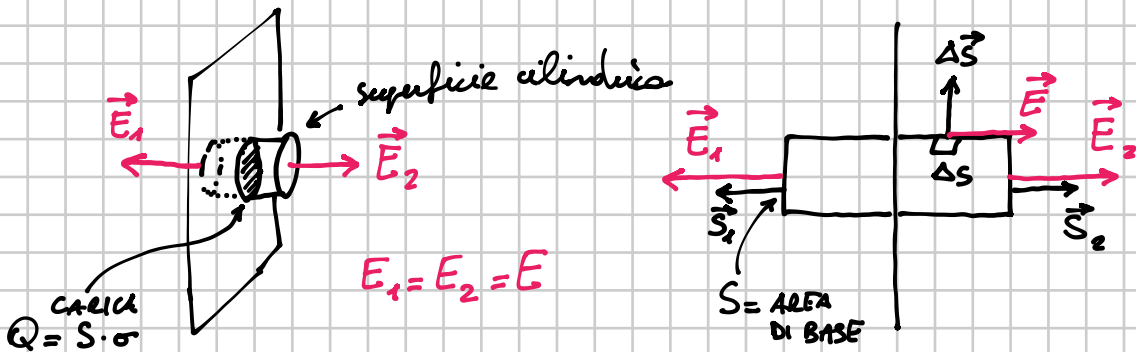 superficie cilindrica
E⃗₁
E⃗₂
CARICA
Q = S · σ
E₁ = E₂ = E
ΔS⃗
E⃗
E⃗₁
E⃗₂
ΔS
S⃗₁
S⃗₂
S = AREA
DI BASE